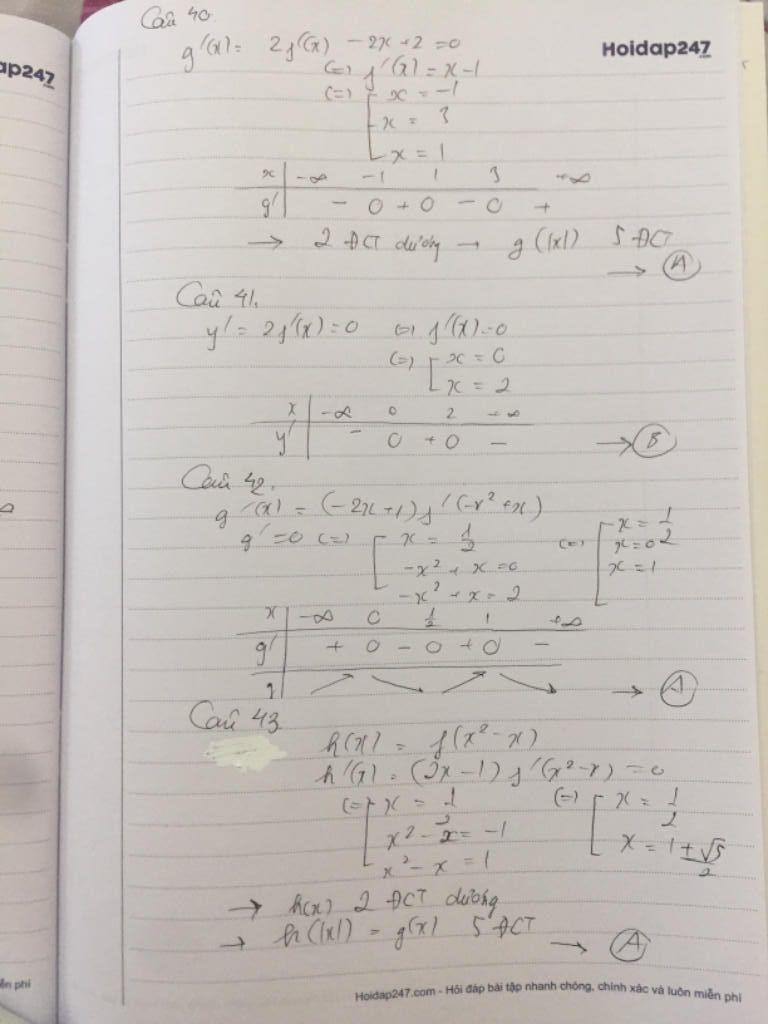 Câu 40.
ap247
Hoidap247
g'(x) = 2f'(x) - 2x + 2 = 0
(=) f'(x) = x - 1
(=) [ x = -1
x = 3
x = 1
x | -∞ -1 1 3 +∞
g' | - 0 + 0 - 0 +
→ 2 ĐCT dương → g(|x|) 5 ĐCT
→ A
Câu 41.
y' = 2f'(x) = 0 (=) f'(x) = 0
(=) [ x = 0
x = 2
x | -∞ 0 2 +∞
y' | - 0 + 0 - → B
Câu 42.
g'(x) = (-2x+1) f'(-x² + x)
g' = 0 (=) [ x = 1/2 (=) [ x = 1/2
-x² + x = 0 x = 0
-x² + x = 2 x = 1
x | -∞ 0 1/2 1 +∞
g' | + 0 - 0 + 0 -
g | ↗ ↘ ↗ ↘ → A
Câu 43
h(x) = f(x² - x)
h'(x) = (2x - 1) f'(x² - x) = 0
(=) [ x = 1/2 (=) [ x = 1/2
x² - x = -1
x = 1±√5/2
x² - x = 1
→ h(x) 2 ĐCT dương
→ h(|x|) = g(x) 5 ĐCT → A
ễn phí
Hoidap247.com - Hỏi đáp bài tập nhanh chóng, chính xác và luôn miễn phí